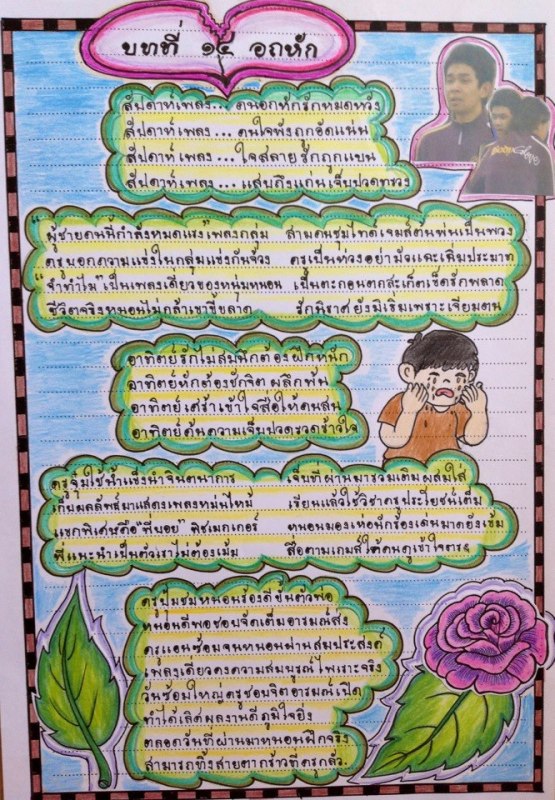 บทที่ ๑๔ อกหัก
สัปดาห์เพลง... คนอกหักรักหมดหวัง
สัปดาห์เพลง... คนใจพังถูกอัดแน่น
สัปดาห์เพลง... ใจสลายรักถูกแบน
สัปดาห์เพลง... แสบถึงแก่นเจ็บปวดทรวง
"ผู้ชายคนนี้กำลังหมดแรง" เพลงกลุ่ม สามคนซุ่มโหดเจมส์ต้นพ่นเป็นพวง
ครูบอกความแข่งในกลุ่มแข่งกันจ้วง ครูเป็นห่วงอย่ามัวแฉะเลิ่มประมาท
"จำทำไม" เป็นเพลงเดี่ยวของหนุ่มหนอน เป็นตะกอนตกสะเก็ดเช็ดรักพลาด
ชีวิตจริงหนอนไม่กล้าเขาขี้ขลาด รักนิราศยังมิเริ่มเพราะเจียมตน
อาทิตย์รักไม่สมนึกต้องฝึกหนัก
อาทิตย์หักต้องชักจิตผลึกหม่น
อาทิตย์เศร้าเข้าใจสื่อให้คนสน
อาทิตย์ค้นความเจ็บปวดรวดร้าวใจ
ครูจุ๋มใช้น้ำแข็งนำจินตนาการ เจ็บที่ผ่านมารวมเติมผสมใส่
เก็บผลลัพธ์มาแสดงเพลงหม่นไหม้ เรียนแล้วใช้วิชาครูประโยชน์เต็ม
แขกพิเศษคือ "พี่บอย" พีชเมกเกอร์ หนอนมองเหอนักร้องเด่นมาดยังเข้ม
พี่แนะนำเป็นตัวเราไม่ต้องเม้ม สื่อตามเกมส์ให้คนดูเข้าใจตรง
ครูปุ้มชมหนอนร้องดีขึ้นตัวพอ
หนอนดีพอชอบจัดเต็มอารมณ์ส่ง
ครูแอนซ้อมจนหนอนผ่านสมประสงค์
เพลงเดี่ยวคงความสมบูรณ์ไพเราะจริง
วันซ้อมใหญ่ครูชอบจิตอารมณ์เปิด
ทำได้เลิศผลงานดีภูมิใจยิ่ง
ตลอดวันที่ผ่านมาหนอนฝึกจริง
สามารถทิ้งสายตากร้าวที่ครูกลัว.